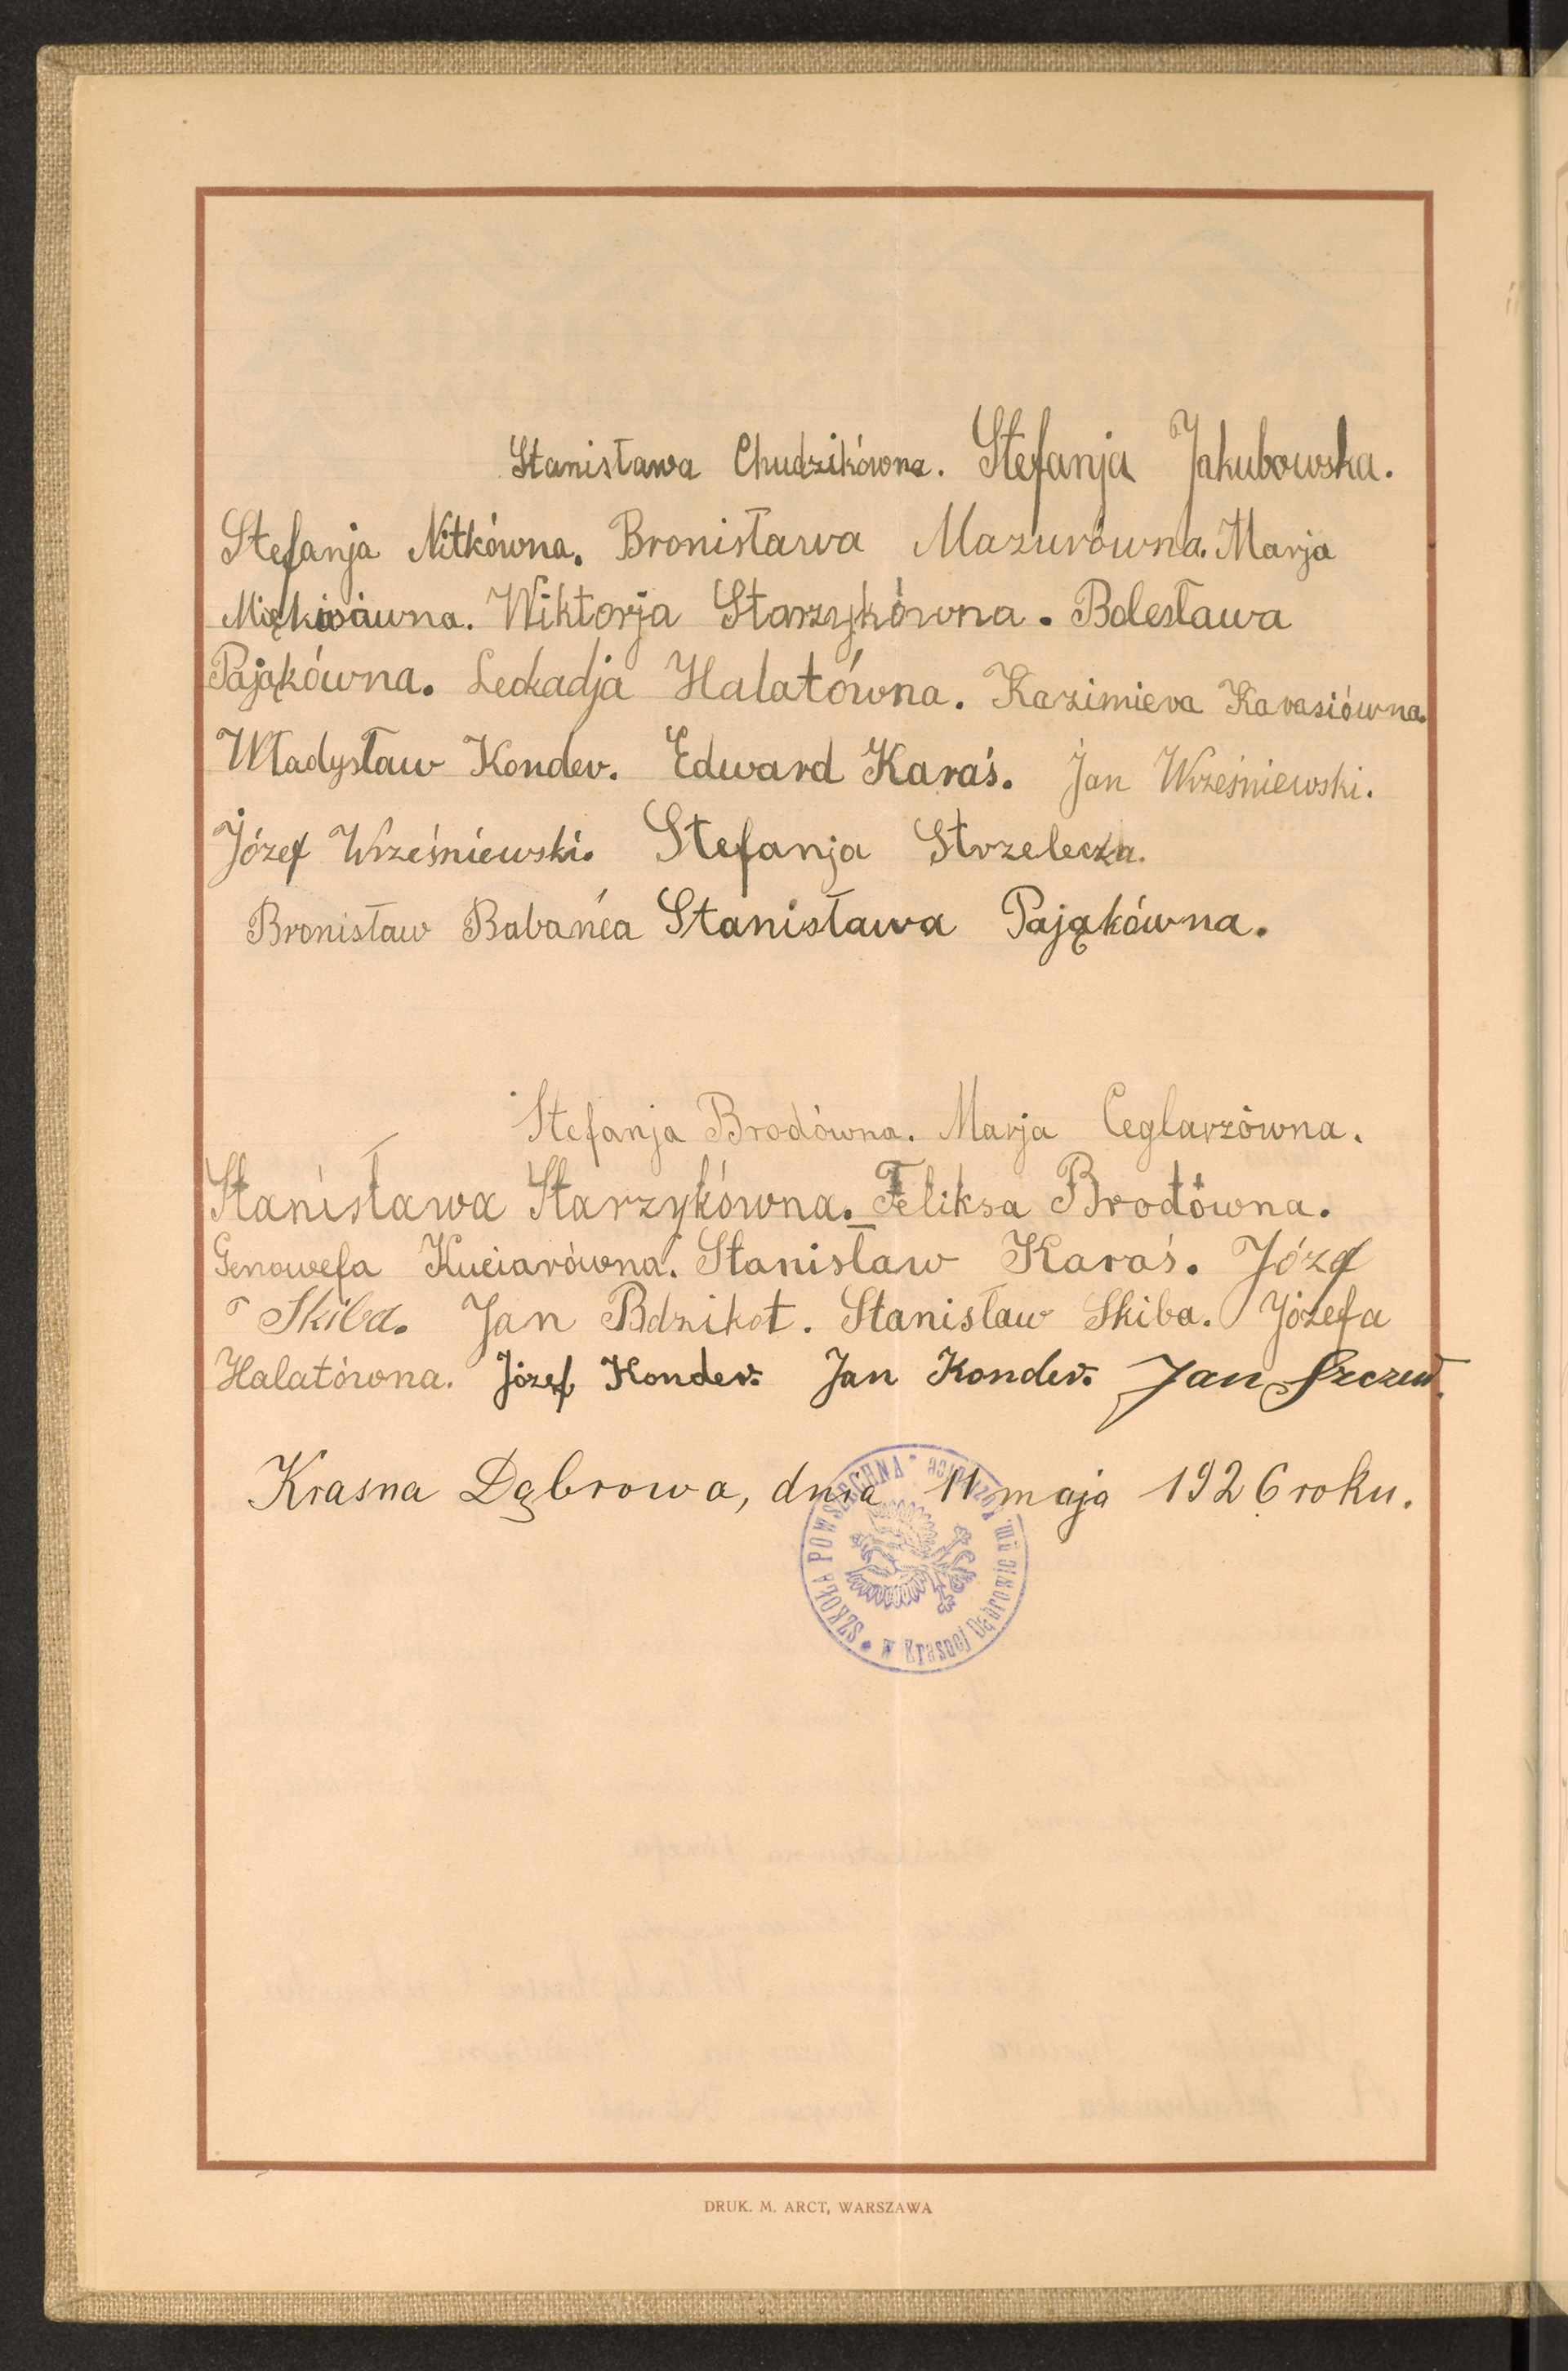 Stanisława Chudzikówna. Stefanja Jakubowska.
Stefanja Nitkówna. Bronisława Mazurówna. Marja
Wiktorja Starzykówna. Bolesława
Pająkówna. Leokadja Halatówna. Kazimiera Karasiówna.
Władysław Konder. Edward Karaś. Jan Wrześniewski.
Józef Wrześniewski. Stefanja Strzelecka.
Bronisław Stanisława Pająkówna.
Stefanja Brodówna. Marja Ceglarzówna.
Stanisława Starzykówna. Feliksa Brodówna.
Genowefa Kuciarówna. Stanisław Karaś. Józef
Skiba. Jan Bdzikot. Stanisław Skiba. Józefa
Halatówna. Józef Konder. Jan Konder. Jan
Krasna Dąbrowa, dnia 11 maja 1926 roku.
SZKOŁA POWSZECHNA
w Krasnej Dąbrowie gm. Kozienice
DRUK. M. ARCT, WARSZAWA